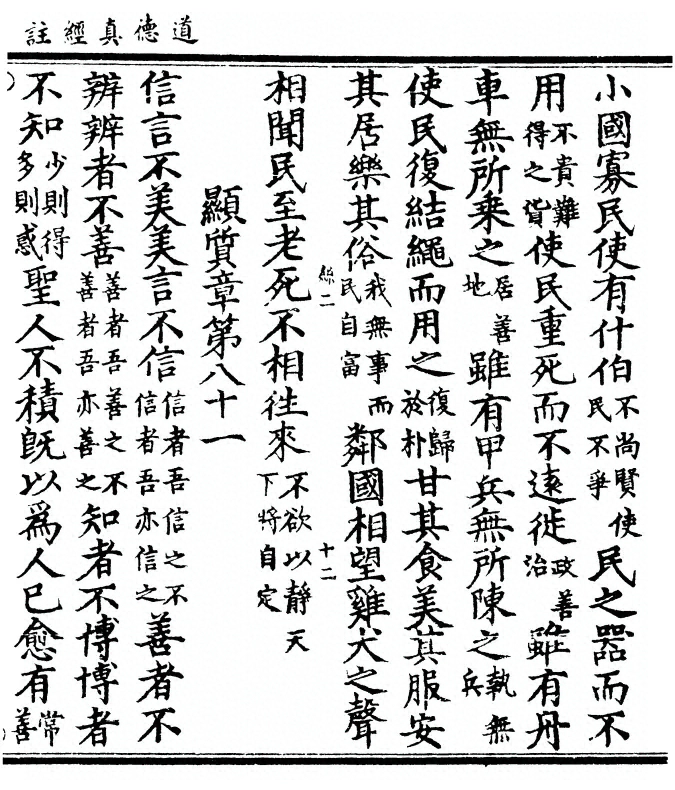 道德真經註
小國寡民使有什伯不尚賢使民不爭民之器而不
用不貴難得之貨使民重死而不遠徙政善治雖有舟
車無所乗之居善地雖有甲兵無所陳之執無兵
使民復結繩而用之復歸於朴甘其食美其服安
其居樂其俗我無事而民自富鄰國相望雞犬之聲
絲二 十二
相聞民至老死不相徃來不欲以靜天下將自定
顯質章第八十一
信言不美美言不信信者吾信之不信者吾亦信之善者不
辨辨者不善善者吾善之不善者吾亦善之知者不博博者
不知少則得多則惑聖人不積旣以爲人已愈有常善